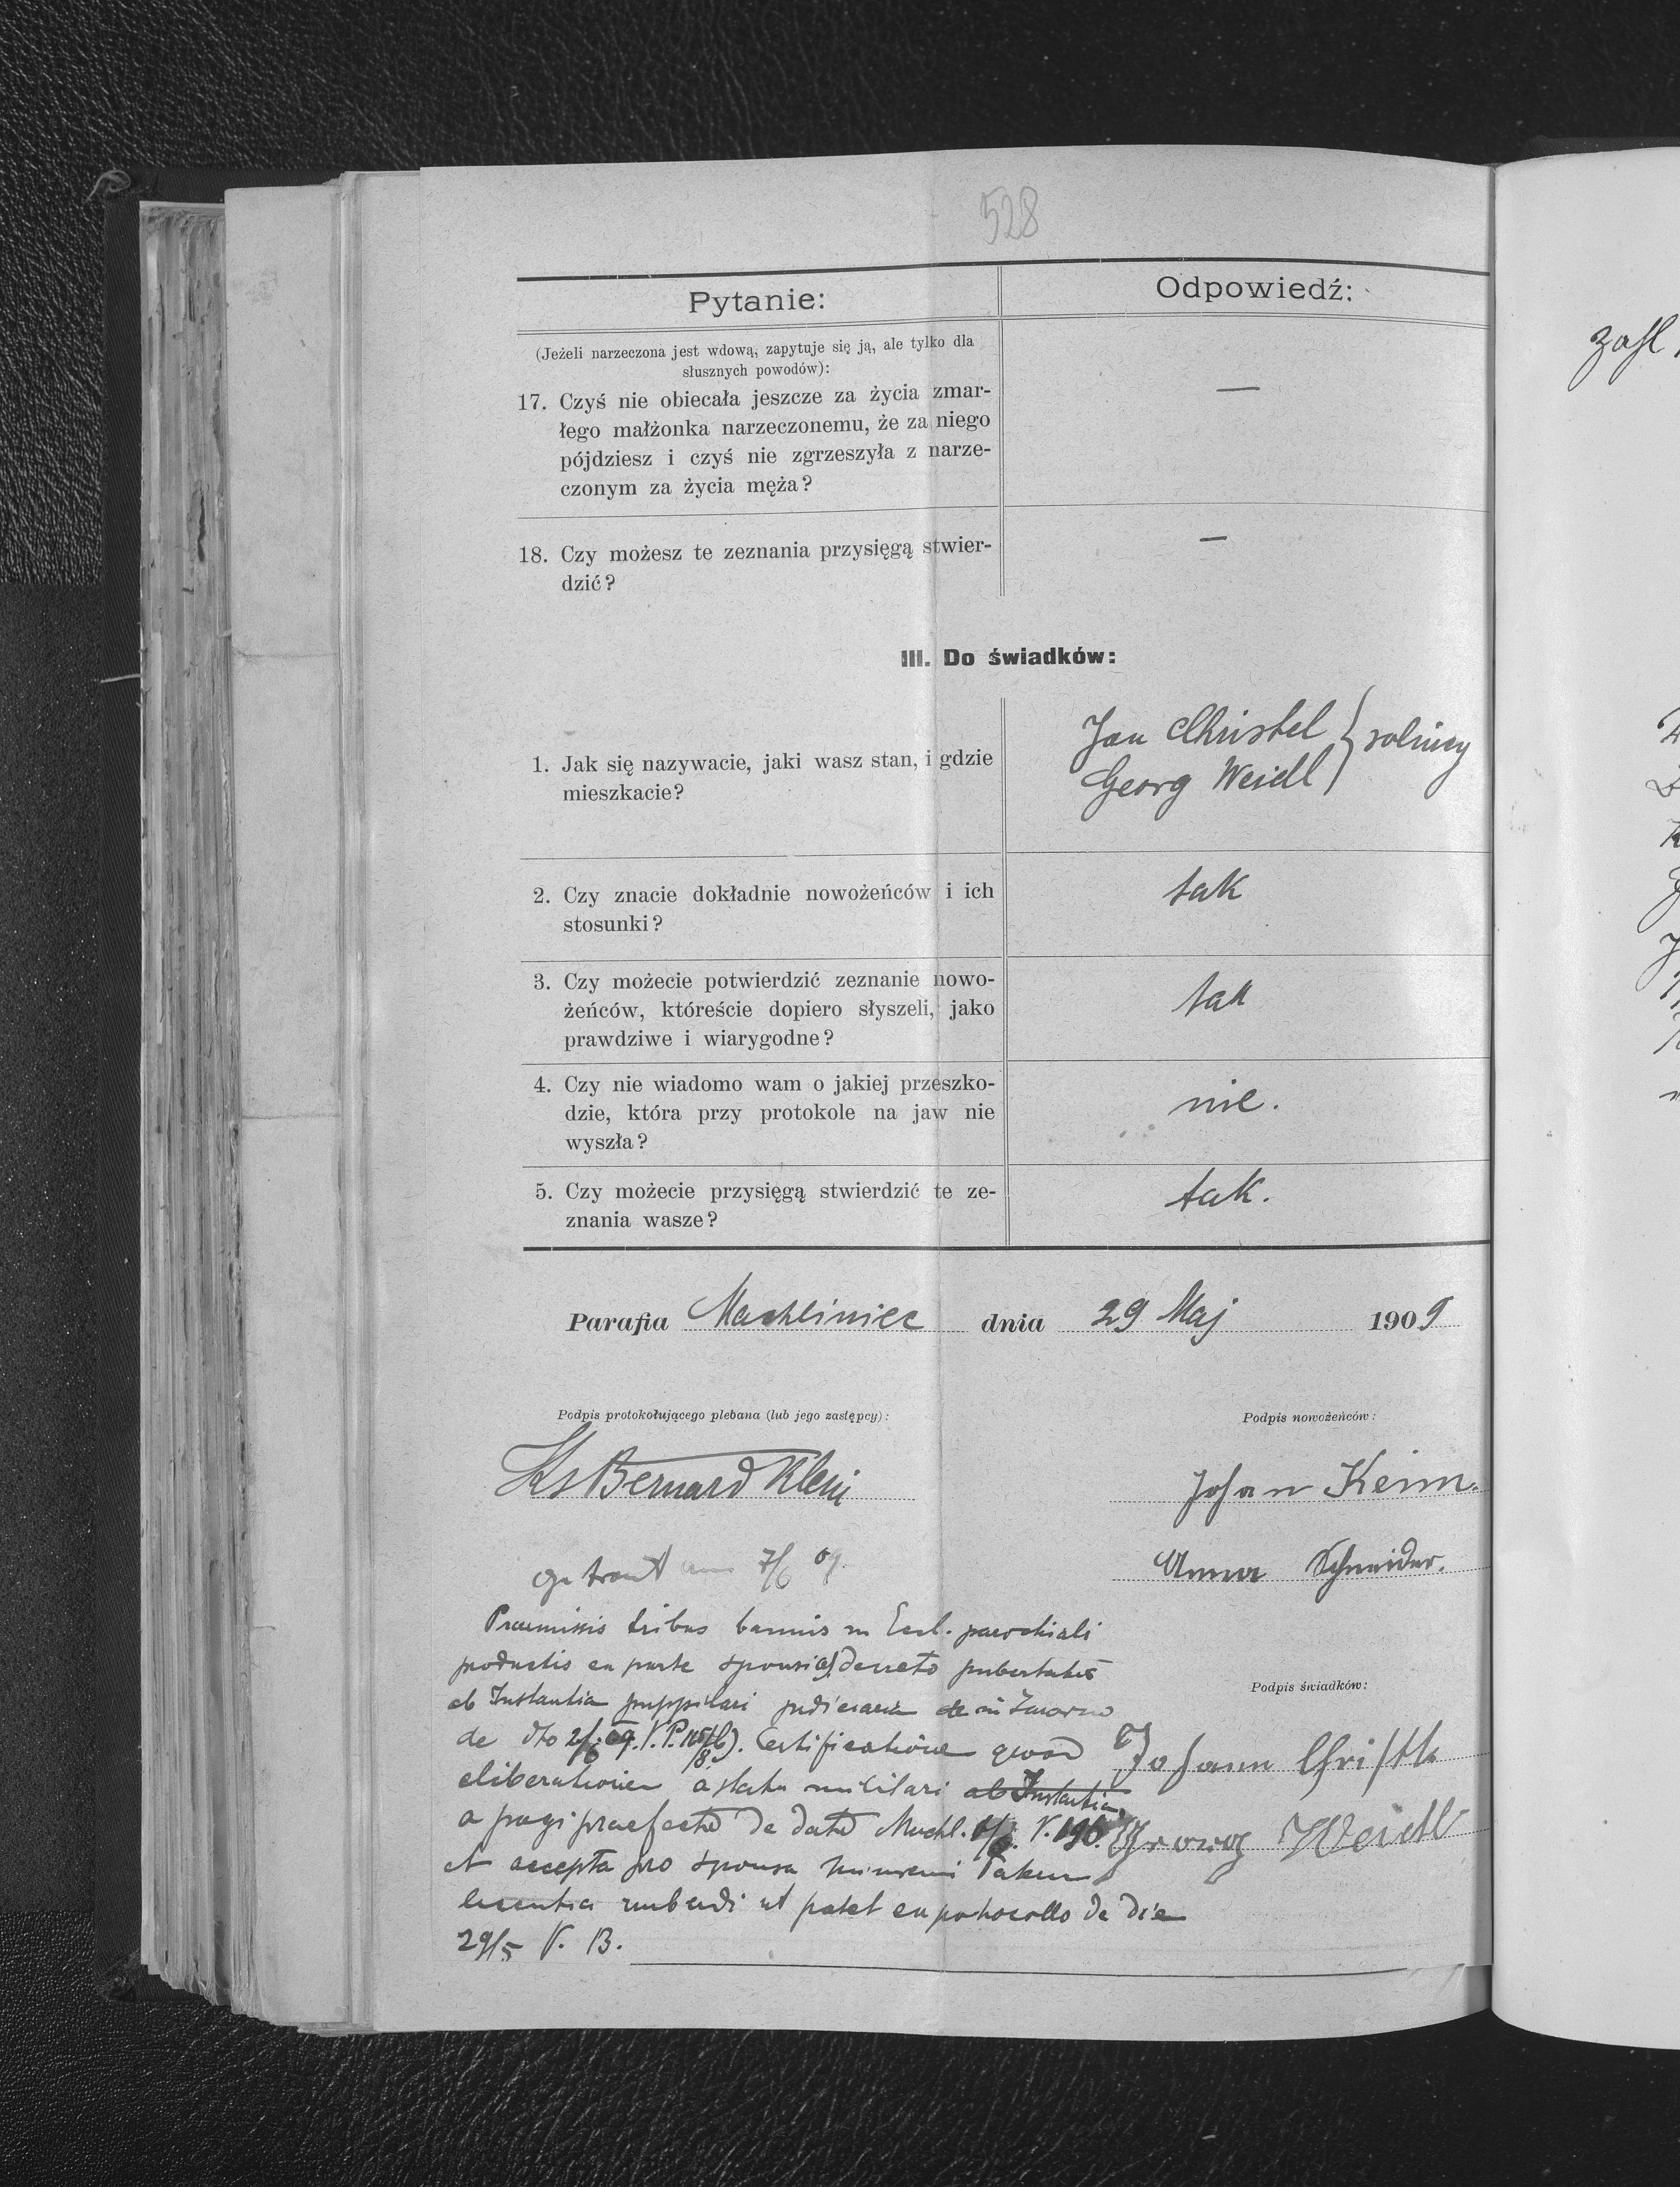 528
Pytanie:
Odpowiedź:
(Jeżeli narzeczona jest wdową, zapytuje się ją, ale tylko dla
słusznych powodów):
17. Czyś nie obiecała jeszcze za życia zmar-
łego małżonka narzeczonemu, że za niego
pójdziesz i czyś nie zgrzeszyła z narze-
czonym za życia męża?
—
18. Czy możesz te zeznania przysięgą stwier-
dzić?
—
III. Do świadków:
1. Jak się nazywacie, jaki wasz stan, i gdzie
mieszkacie?
Jan Christel
Georg Weidl } rolnicy
2. Czy znacie dokładnie nowożeńców i ich
stosunki?
tak
3. Czy możecie potwierdzić zeznanie nowo-
żeńców, któreście dopiero słyszeli, jako
prawdziwe i wiarygodne?
tak
4. Czy nie wiadomo wam o jakiej przeszko-
dzie, która przy protokole na jaw nie
wyszła?
nie.
5. Czy możecie przysięgą stwierdzić te ze-
znania wasze?
tak.
Parafia Machliniec dnia 29 Maj 1909
Podpis protokołującego plebana (lub jego zastępcy):
Ks Bernard Klein
Podpis nowożeńców:
Johan Keim.
Anna Schneider.
getraut am 7/6 09.
Praemissis tribus bannis in Eccl. parochiali
productis ex parte sponsi decreto pubertatis
ab Instantia puppilari
de dto 2/6 09. Certificatione quoad
eliberationem a statu militari ab Instantia
a pagi praefecto de dato Machl.
et accepta pro sponsa
licentia nubendi ut patet ex protocollo de die
29/5 V. B.
Podpis świadków:
Johann Christl
Georg Weidl
zahl